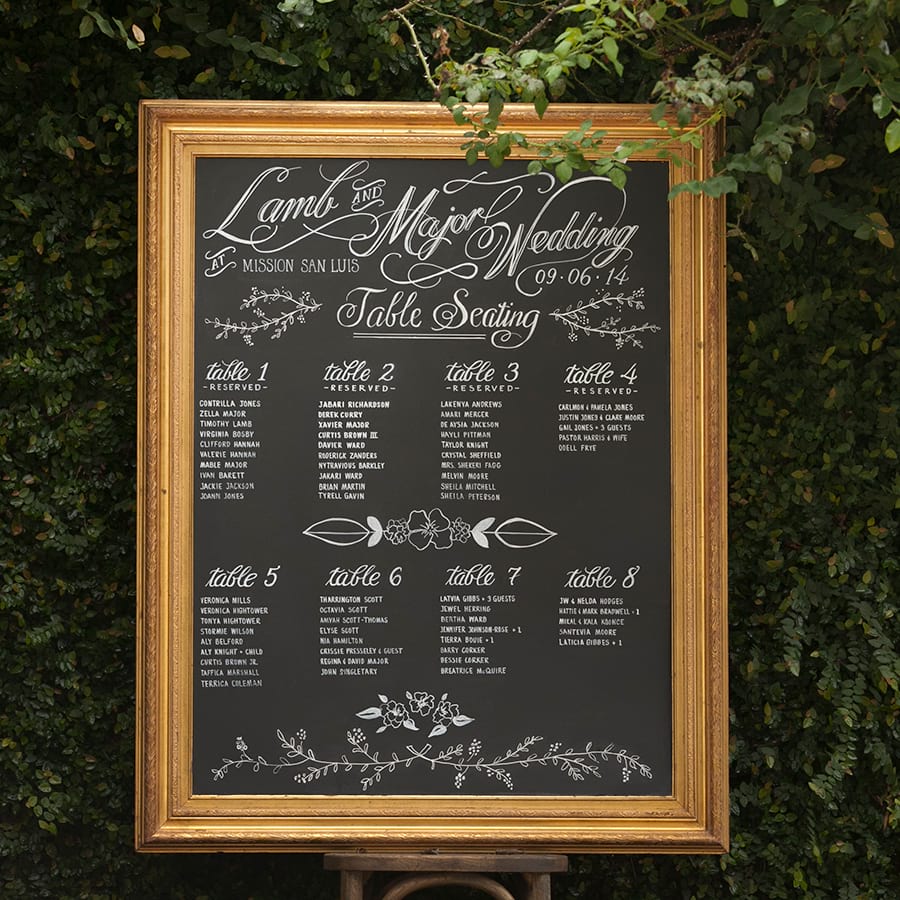 Lamb AND Major Wedding
AT MISSION SAN LUIS
09·06·14
Table Seating
table 1
-RESERVED-
CONTRILLA JONES
ZELLA MAJOR
TIMOTHY LAMB
VIRGINIA BOSBY
CLIFFORD HANNAH
VALERIE HANNAH
MABLE MAJOR
IVAN BARETT
JACKIE JACKSON
JOANN JONES
table 2
-RESERVED-
JABARI RICHARDSON
DEREK CURRY
XAVIER MAJOR
CURTIS BROWN III
DAVIER WARD
RODERICK ZANDERS
NYTRAVIOUS BARKLEY
JAKARI WARD
BRIAN MARTIN
TYRELL GAVIN
table 3
-RESERVED-
LAKENYA ANDREWS
AMARI MERCER
DE'AYSIA JACKSON
HAYLI PITTMAN
TAYLOR KNIGHT
CRYSTAL SHEFFIELD
MRS. SHEKERI FAGG
MELVIN MOORE
SHEILA MITCHELL
SHEILA PETERSON
table 4
-RESERVED-
CARLMON & PAMELA JONES
JUSTIN JONES & CLARE MOORE
GAIL JONES + 3 GUESTS
PASTOR HARRIS & WIFE
ODELL FRYE
table 5
VERONICA MILLS
VERONICA HIGHTOWER
TONYA HIGHTOWER
STORMIE WILSON
ALY BELFORD
ALY KNIGHT + CHILD
CURTIS BROWN JR.
TAFFICA MARSHALL
TERRICA COLEMAN
table 6
THARRINGTON SCOTT
OCTAVIA SCOTT
AMYAH SCOTT-THOMAS
ELYSE SCOTT
NIA HAMILTON
CRISSIE PRESSELEY & GUEST
REGINA & DAVID MAJOR
JOHN SINGLETARY
table 7
LATVIA GIBBS + 3 GUESTS
JEWEL HERRING
BERTHA WARD
JENNIFER JOHNSON-ROSE + 1
TIERRA BOUIE + 1
BARRY CORKER
BESSIE CORKER
BREATRICE McQUIRE
table 8
JW & NELDA HODGES
HATTIE & MARK BRADWELL + 1
MIKAL & KALA KOONCE
SANTEVIA MOORE
LATICIA GIBBES + 1